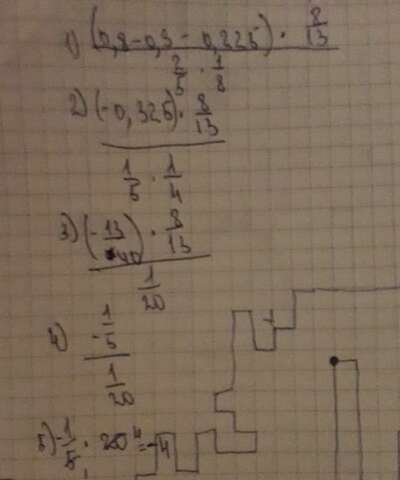 1) (0,8-0,3-0,825) · 8/13
2/5 · 1/8
2) (-0,325) · 8/13
1/5 · 1/4
3) (-13/40) · 8/13
1/20
4) -1/5
1/20
5) -1/5 · 20 = -4